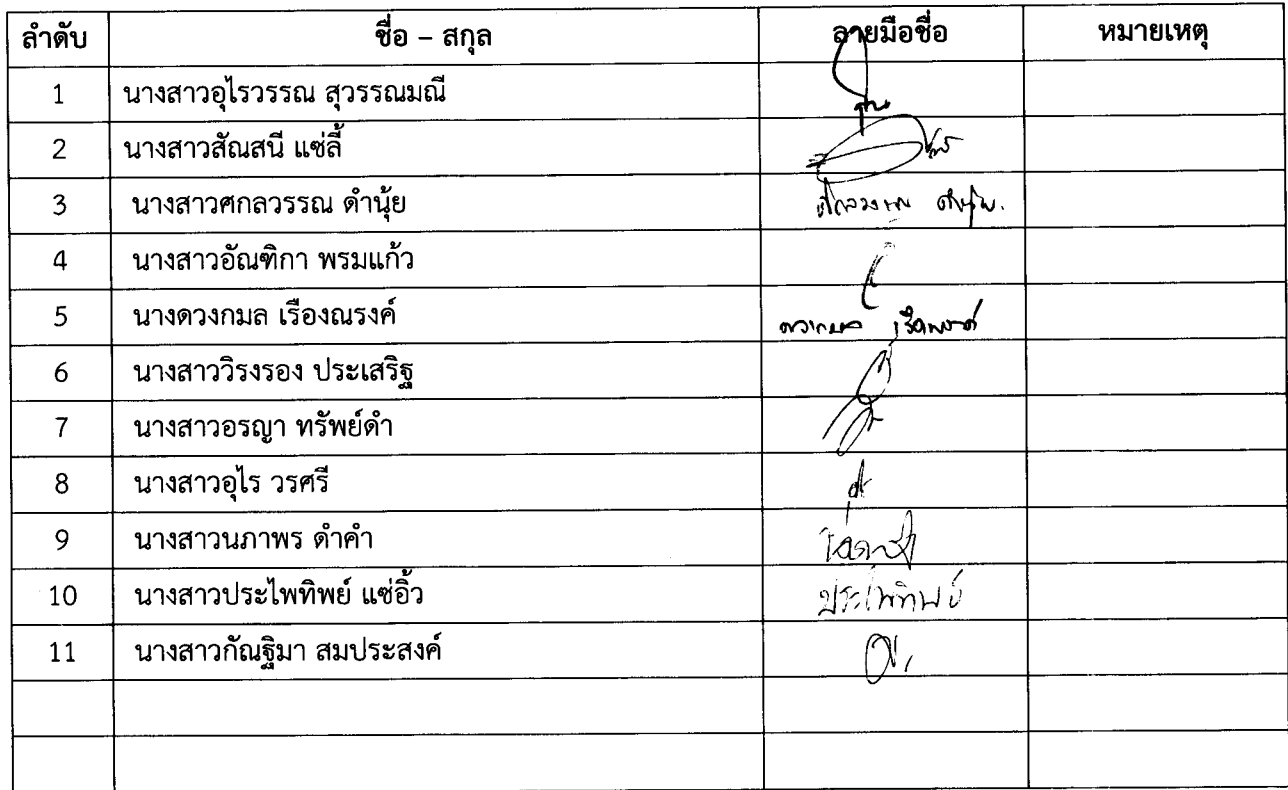 ลำดับ ชื่อ – สกุล ลายมือชื่อ หมายเหตุ
1 นางสาวอุไรวรรณ สุวรรณมณี
2 นางสาวสัณสนี แซ่ลี้
3 นางสาวศกลวรรณ ดำนุ้ย
4 นางสาวอัณฑิกา พรมแก้ว
5 นางดวงกมล เรืองณรงค์ ดวงกมล เรืองณรงค์
6 นางสาววิรงรอง ประเสริฐ
7 นางสาวอรญา ทรัพย์ดำ
8 นางสาวอุไร วรศรี
9 นางสาวนภาพร ดำคำ
10 นางสาวประไพทิพย์ แซ่อิ้ว ประไพทิพย์
11 นางสาวกัณฐิมา สมประสงค์